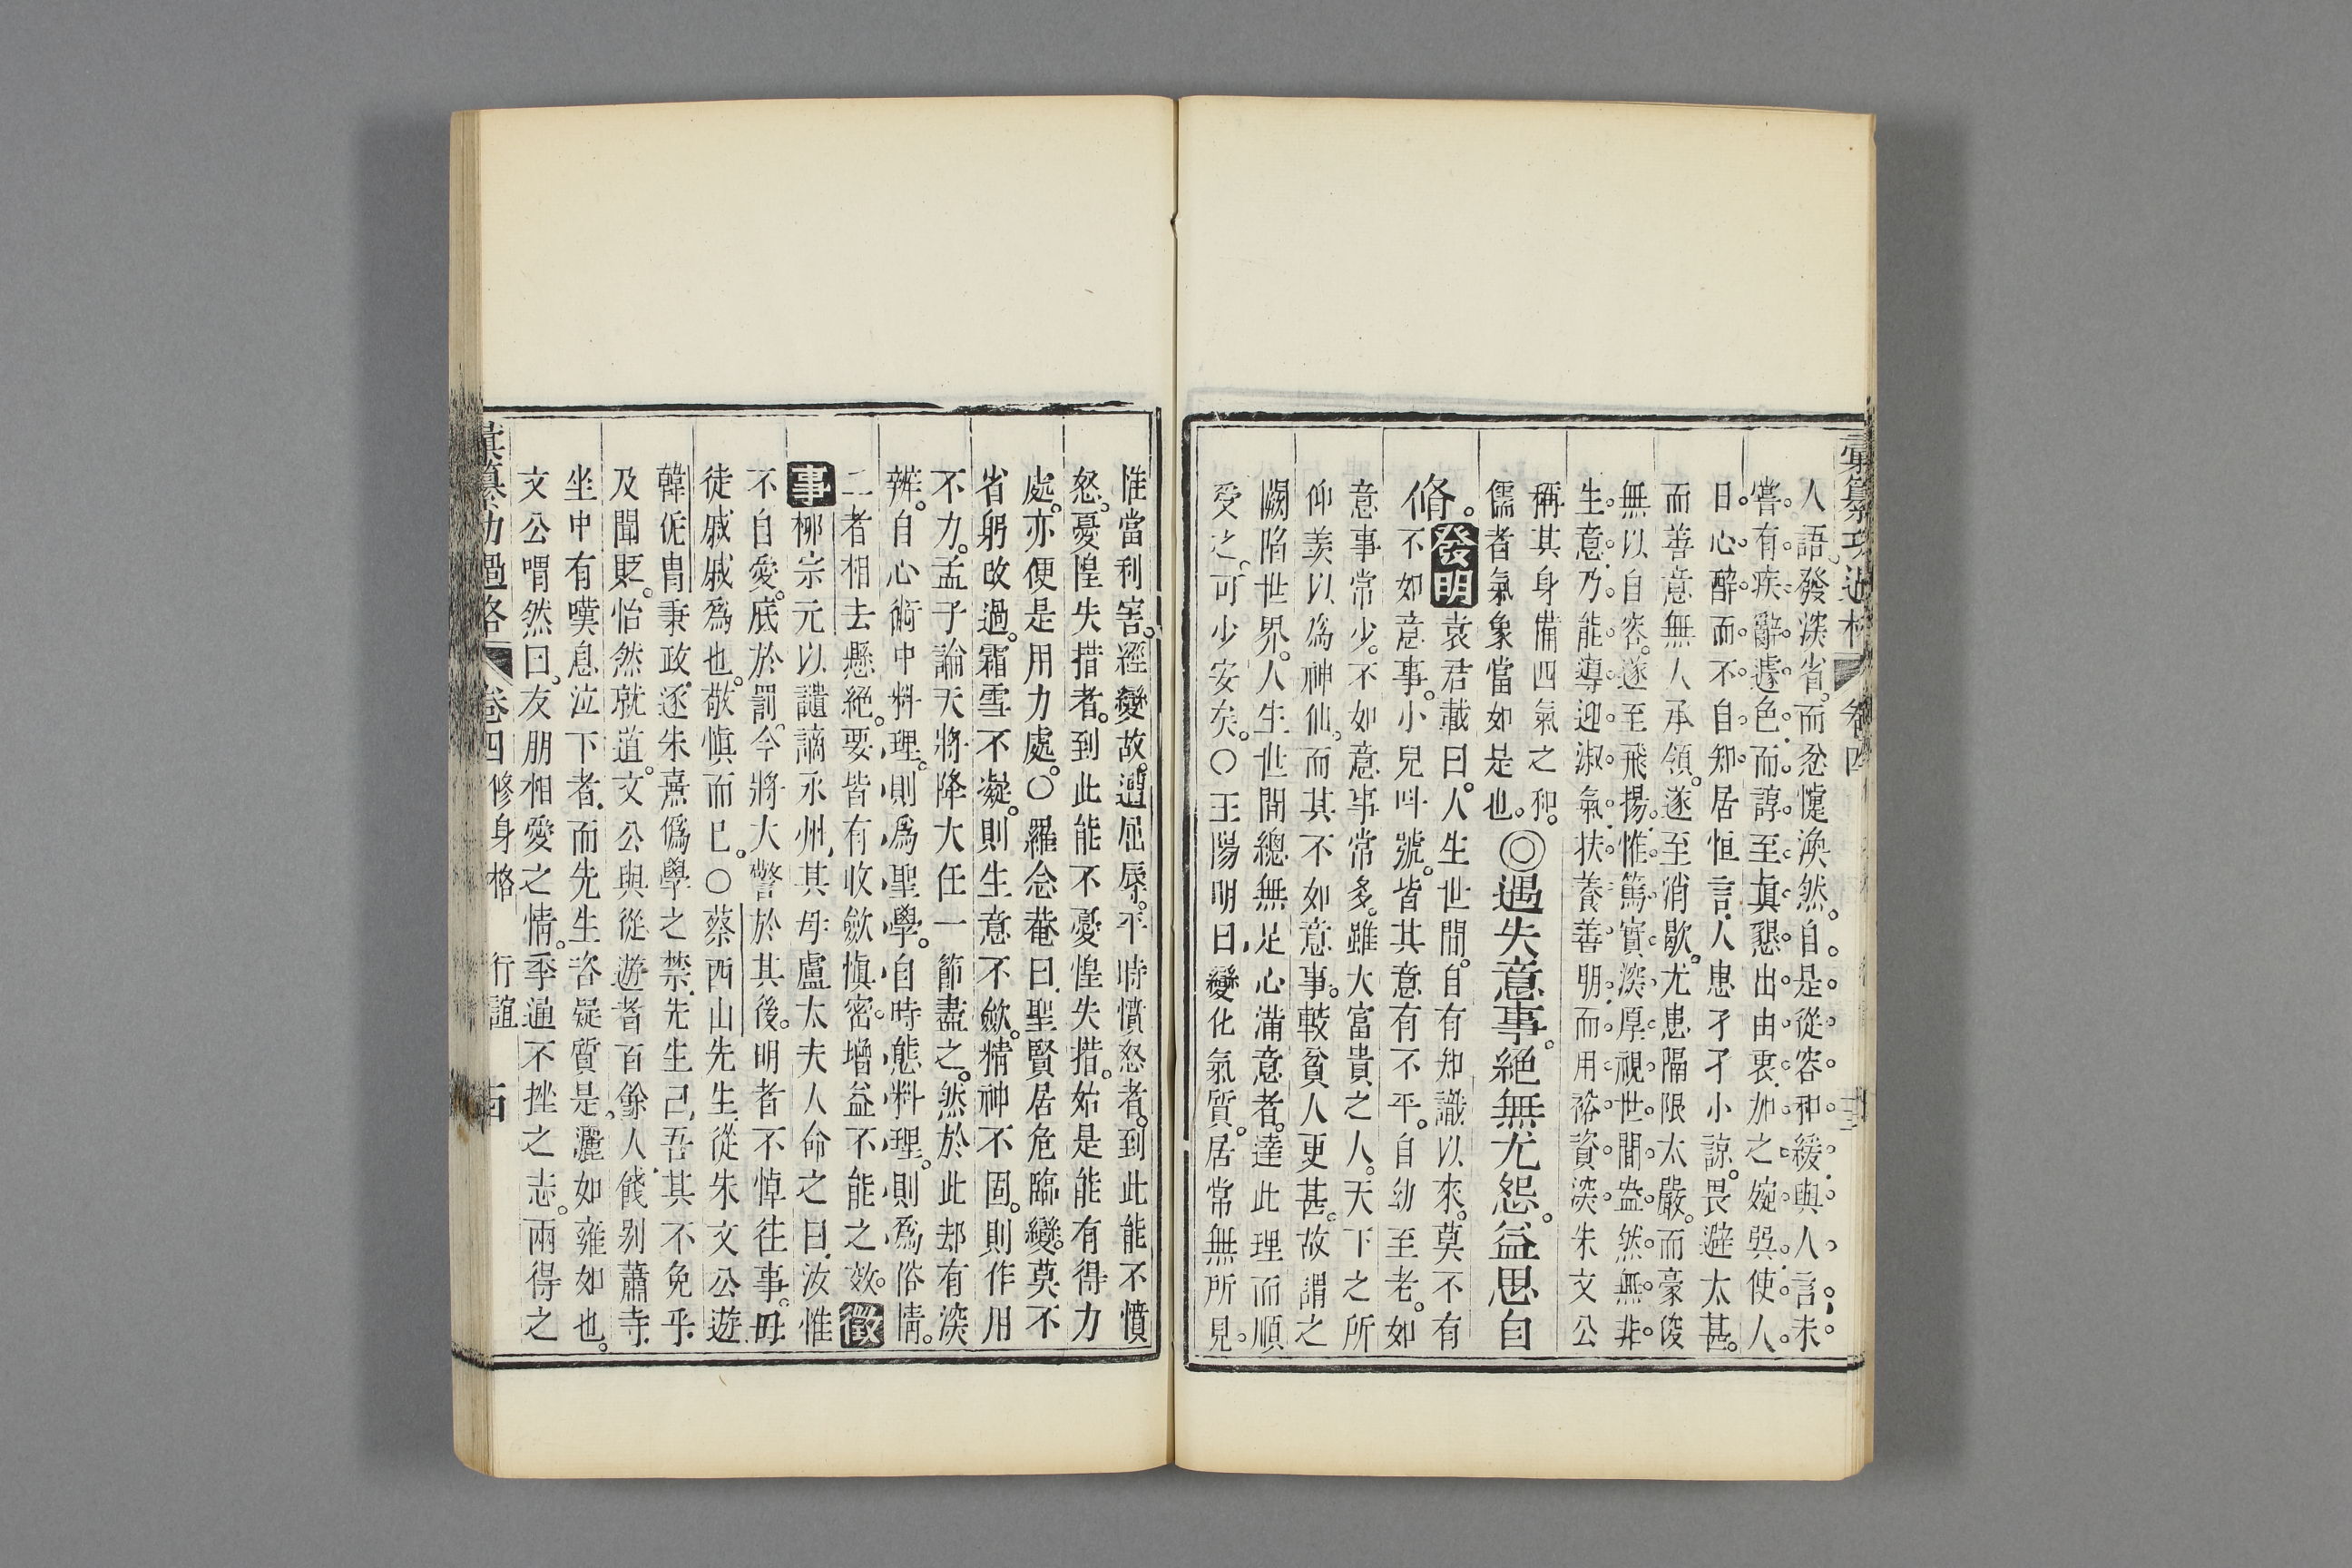 彙纂功過格 卷四
人語發深省而忿懥渙然自是從容和緩與人言未
嘗有疾辭遽色而諄至眞懇出由衷加之婉巽使人
日心醉而不自知居恒言人患孑孑小諒畏避太甚
而善意無人承領遂至消歇尤患隔限太嚴而豪俊
無以自容遂至飛揚惟篤實深厚視世間盎然無非
生意乃能導迎淑氣扶養善明而用裕資深朱文公
稱其身備四氣之和
儒者氣象當如是也◎遇失意事絕無尤怨益思自
脩發明袁君載曰人生世間自有知識以來莫不有
不如意事小兒叫號皆其意有不平自幼至老如
意事常少不如意事常多雖大富貴之人天下之所
仰羨以爲神仙而其不如意事較貧人更甚故謂之
闕陷世界人生世間總無足心滿意者達此理而順
受之可少安矣〇王陽明曰變化氣質居常無所見
惟當利害經變故遭屈辱平時憤怒者到此能不憤
怒憂惶失措者到此能不憂惶失措始是能有得力
處亦便是用力處〇羅念菴曰聖賢居危臨變莫不
省躬改過霜雪不凝則生意不歛精神不固則作用
不力孟子論天將降大任一節盡之然於此却有深
辨自心術中料理則爲聖學自時態料理則爲俗情
二者相去懸絕要皆有收歛愼密增益不能之效徵
事柳宗元以譴謫永州其母盧太夫人命之曰汝惟
不自愛底於罰今將大警於其後明者不悼往事毋
徒戚戚爲也敬愼而已〇蔡西山先生從朱文公遊
韓侂胄秉政逐朱熹僞學之禁先生曰吾其不免乎
及聞貶怡然就道文公與從遊者百餘人餞別蕭寺
坐中有嘆息泣下者而先生咨疑質是灑如雍如也
文公喟然曰友朋相愛之情季通不挫之志兩得之
彙纂功過格 卷四 修身格 行誼